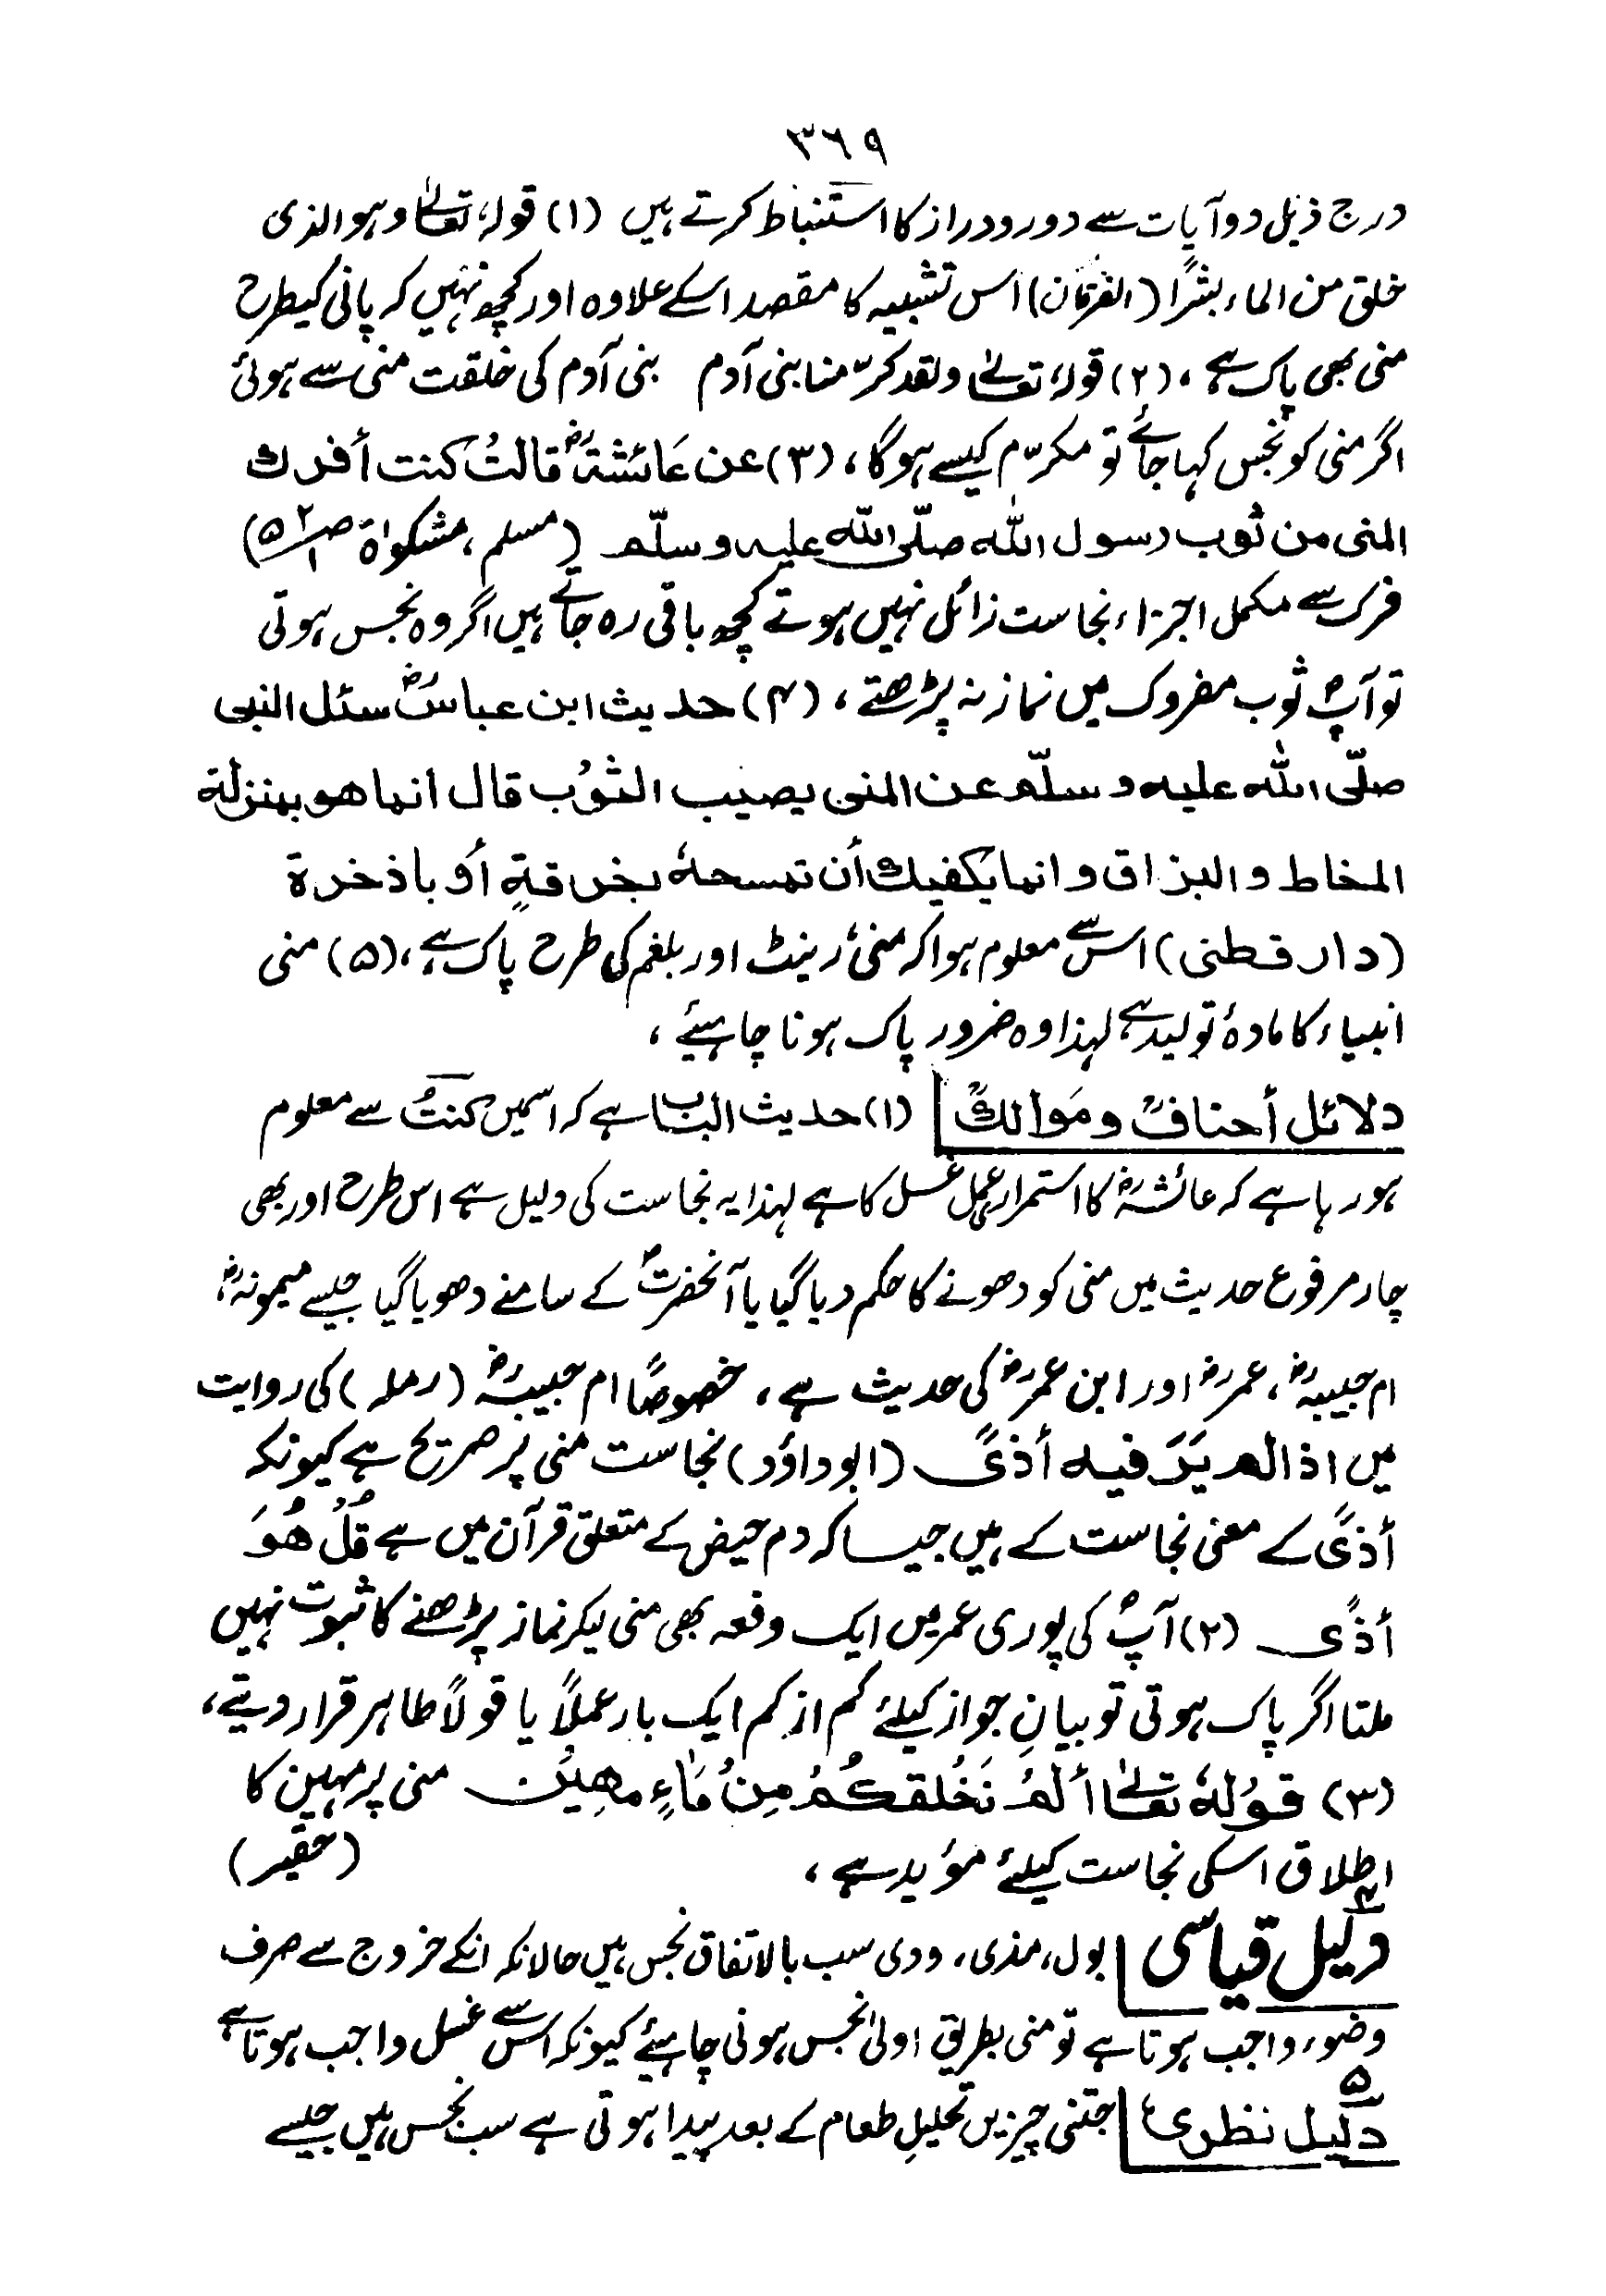 ۳۶۹
درج ذیل دو آیات سے دور و دراز کا استنباط کرتے ہیں (۱) قولہٗ تعالےٰ وہو الذی
خلق من الماء بشرًا (الفرقان) اس تشبیہ کا مقصد اسکے علاوہ اور کچھ نہیں کہ پانی کیطرح
منی بھی پاک ہے، (۲) قولہٗ تعالےٰ ولقد کرّمنا بنی آدم بنی آدم کی خلقت منی سے ہوئی
اگر منی کو نجس کہا جائے تو مکرّم کیسے ہوگا، (۳) عن عَائشةؓ قالتُ کنت أفرك
المنی من ثوب رسول الله صلّی الله علیہ وسلّم (مسلم، مشکوٰۃ ص۵۲/۱)
فرک سے مکمل اجزاء نجاست زائل نہیں ہوتے کچھ باقی رہ جاتے ہیں اگر وہ نجس ہوتی
تو آپؐ ثوب مفروک میں نماز نہ پڑھتے، (۴) حدیث ابن عباسؓ سئل النبی
صلّی الله علیه وسلّم عن المنی یصیب الثوُب قال انما هو بمنزلة
المخاط والبزاق وانما یکفیك أن تمسحهٗ بخرقةٍ أو باذخرة
(دار قطنی) اس سے معلوم ہوا کہ منی رینٹ اور بلغم کی طرح پاک ہے، (۵) منی
انبیاء کا مادۂ تولید ہے لہذا وہ ضرور پاک ہونا چاہیئے،
دلائل أحنافؒ و مَوالكؒ (۱) حدیث الباب ہے کہ اسمیں کنتُ سے معلوم
ہو رہا ہے کہ عائشہؓ کا استمرار عمل غسل کا ہے لہذا یہ نجاست کی دلیل ہے اس طرح اور بھی
چار مرفوع حدیث میں منی کو دھونے کا حکم دیا گیا یا آنحضرتؐ کے سامنے دھویا گیا جیسے میمونہؓ،
ام حبیبہؓ، عمرؓ اور ابن عمرؓ کی حدیث ہے، خصوصًا ام حبیبہؓ (رملہ) کی روایت
میں اذا لم یَرَ فیه أذًی (ابوداؤد) نجاست منی پر صریح ہے کیونکہ
أذًی کے معنی نجاست کے ہیں جیسا کہ دم حیض کے متعلق قرآن میں ہے قُلُ هُوَ
أذًی (۲) آپؐ کی پوری عمر میں ایک دفعہ بھی منی لیکر نماز پڑھنے کا ثبوت نہیں
ملتا اگر پاک ہوتی تو بیانِ جواز کیلئے کم از کم ایک بار عملًا یا قولًا طاہر قرار دیتے،
(۳) قوُلهٗ تعالےٰ ألمُ نَخُلقکُمُ مِنُ مَاءٍ مهِیُن منی پر مہین کا
(حقیر)
اطلاق اسکی نجاست کیلئے مؤید ہے،
۴ دلیل قیاسی بول، مذی، ودی سب بالاتفاق نجس ہیں حالانکہ انکے خروج سے صرف
وضوء واجب ہوتا ہے تو منی بطریق اولیٰ نجس ہونی چاہیئے کیونکہ اس سے غسل واجب ہوتا ہے
۵ دلیل نظری جتنی چیزیں تحلیلِ طعام کے بعد پیدا ہوتی ہے سب نجس ہیں جیسے